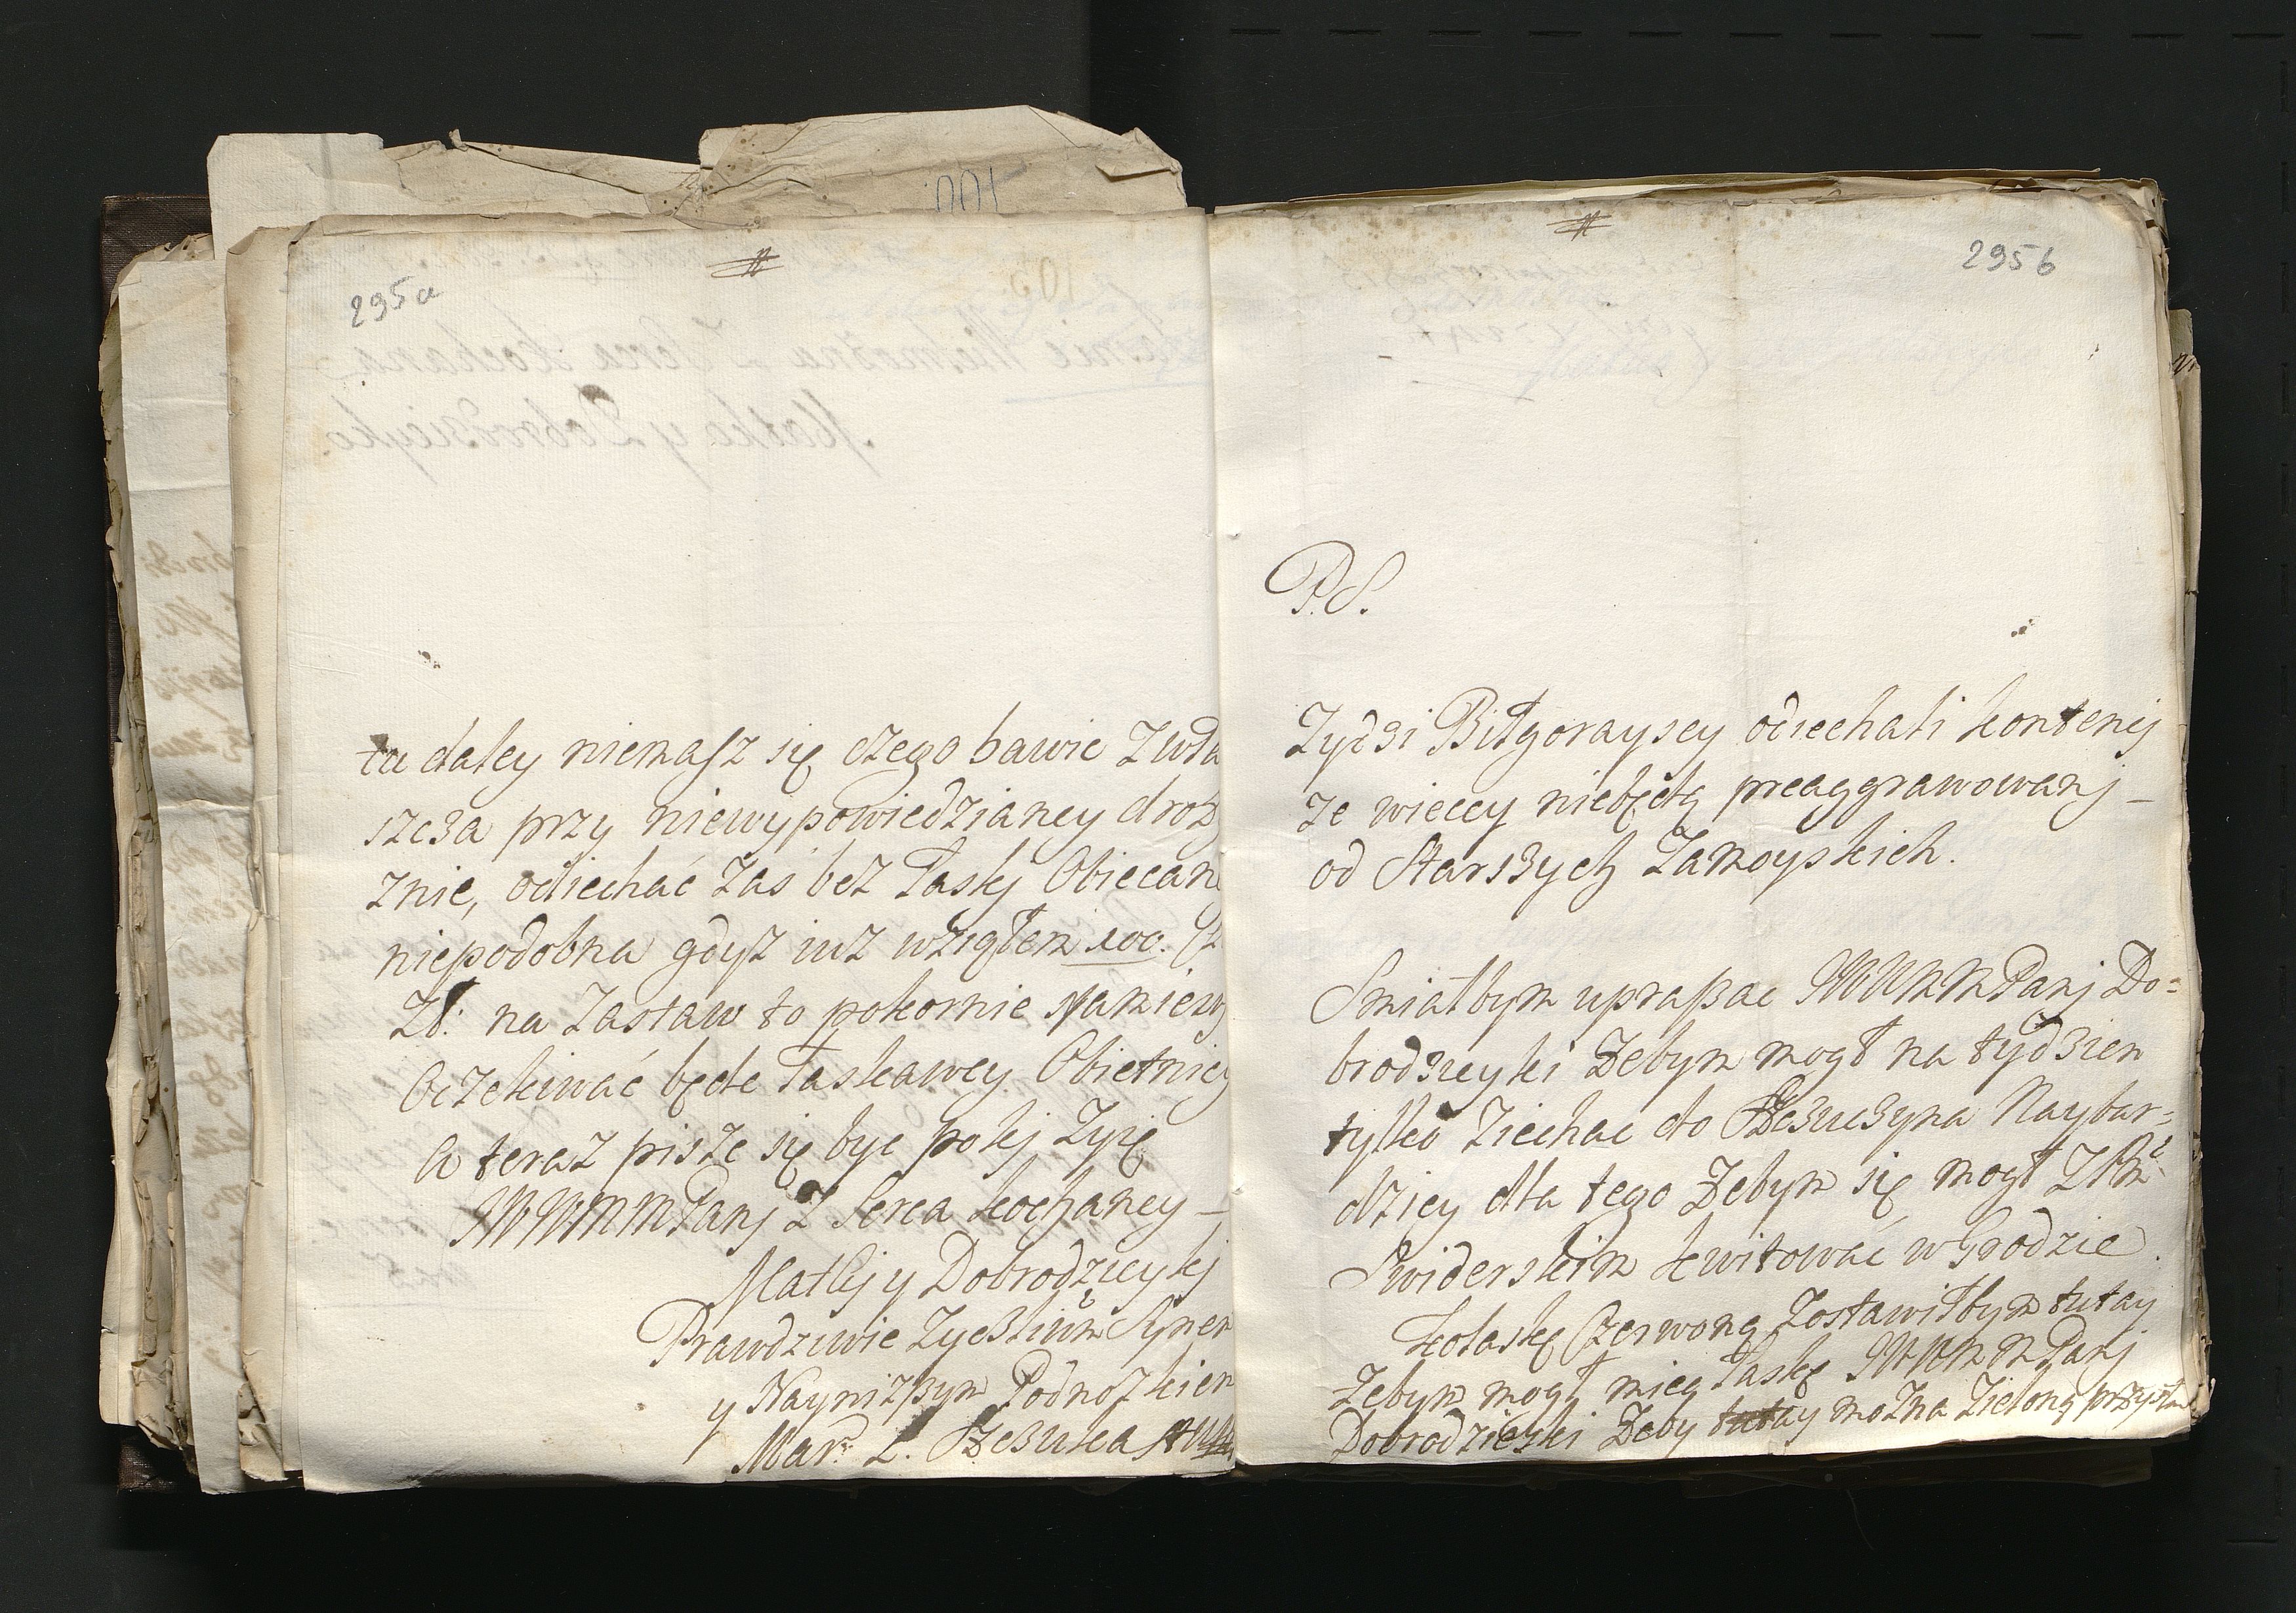 295a
tu daley niemasz się czego bawic Zwła
szcza przy niewypowiedzianey droż
znie, odiechać zas bez Łaskj Obiecan
niepodobna gdysz iuz wziąłem 100.
Zł: na Zastaw to pokornie
Oczekiwać będe Łaskawey Obietnicy
A teraz pisze się byc pokj Zyię
WMM Panj Z Serca kochaney –
Matkj y Dobrodzieykj
Prawdziwie Zyczliwm Synem
y Naynizszym Podnoszkiem
Mar: L.
295b
P.S.
Zydzi Biłgorayscy odiechali kontencj
ze wiecey niebędą preaggrawowanj –
od Starszych Zamoyskich.
Smiałbym upraszac Panj Do=
brodzieyki Zebym mogł na tydzien
tylko Ziechac do Naybar=
dziey dla tego Zebym się mogł Z
Swiderskim kwitować w Grodzie.
Kolaskę Czerwoną Zostawiłbym tutay
Zebym mogł mieć Łaskę Panj
Dobrodzieski Zeby tutay mozna Zieloną